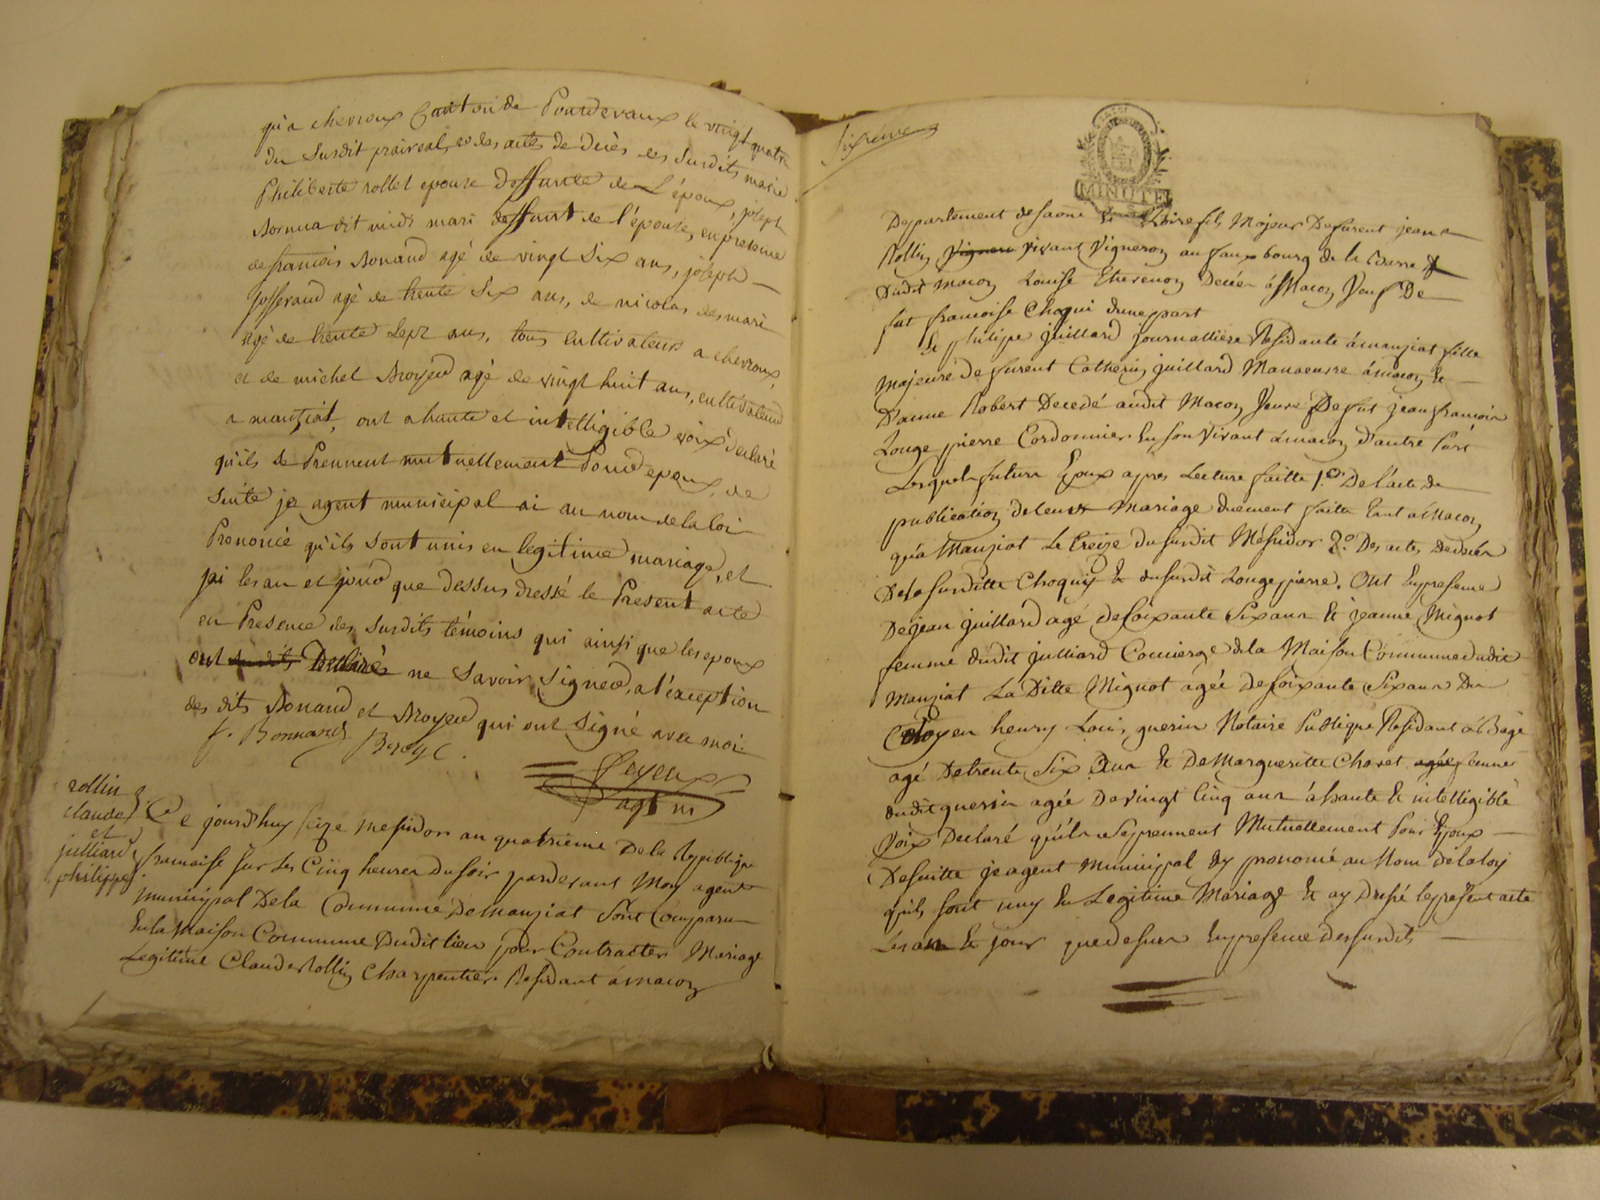 qu'a chevroux Canton de Pontdevaux le vingt quatre
du susdit prairial, et des actes de décès des susdits marie
Philiberte rollet epouse deffunte de L'époux, joseph
dit mari deffunt de l'épouse, en presence
de francois Bonnand agé de vingt six ans, joseph
josserand agé de trente Six ans, de nicolas desmaris
agé de trente sept ans, tous cultivateurs a chevroux,
et de michel Broyer agé de vingt huit ans, cultivateur
a manziat, ont a haute et intelligible voix declaré
qu'ils se Prennent mutuellement Pour epoux, de
suite je agent municipal ai au nom de la loi
Prononcé qu'ils sont unis en legitime mariage, et
jai les an et jour que dessus dressé le Present acte
en Presence des susdits témoins qui ainsi que les epoux
ont Declaré ne savoir signer, a l'exception
des dits Bonand et Broyer qui ont signé avec moi
f. Bonnand Broye.
agt m
rollin
claude
et
juilliard
philippe
Ce jourdhuy seize messidor an quatrieme De la Republique
francaise sur les Cinq heures du soir pardevant Moy agent
municipal De la Commune De manziat Sont Comparu
En la Maison Commune Dudit lieu pour Contracter Mariage
Legitime Claude Rollin Charpentier Residant á macon
Sixième
MINUTE
Departement de saone et Loire fils Majeur De furent jean
Rollin vivant Vigneron au faux bourg de la Barre
Dudit macon Louise Thevenon Decéé á Macon Veuf De
fut francoise Choqui dune part
Et philipe juillard journalliere Residante á manziat fille
majeure De furent Catherin juillard Manoeuvre á macon Et
D'anne Robert Decedé audit Macon Veuve De fut jean francois
Longepierre Cordonnier En son Vivant á macon d'autre Part
Lesquels futurs Epoux apres Lecture faitte 1.º De l'acte de
publication de leurs Mariage duement faitte tant á Macon
qu'a Manziat Le treize du susdit Messidor 2.º Des actes De décés
De la susditte Choquy Et du susdit Longepierre. Ont En presence
De jean juillard agé de soixante six ans Et jeanne Mignot
femme dudit juillard Concierge de la Maison Commune dudit
Manziat La Ditte Mignot agée de soixante six ans Du
Citoyen henry Louis guerin Notaire Publique Residant á Bagé
agé De trente Six ans Et De Margueritte Chavet femme
dudit guerin agée De vingt Cinq ans á haute Et intelligible
Voix Declaré qu'ils se prennent Mutuellement Pour Epoux
De suitte je agent Municipal Ey prononcé au Nom de la loy
qu'ils sont uny En Legitime Mariage Et ay Dressé le present acte
Les an Et jour que dessus En presence des susdits